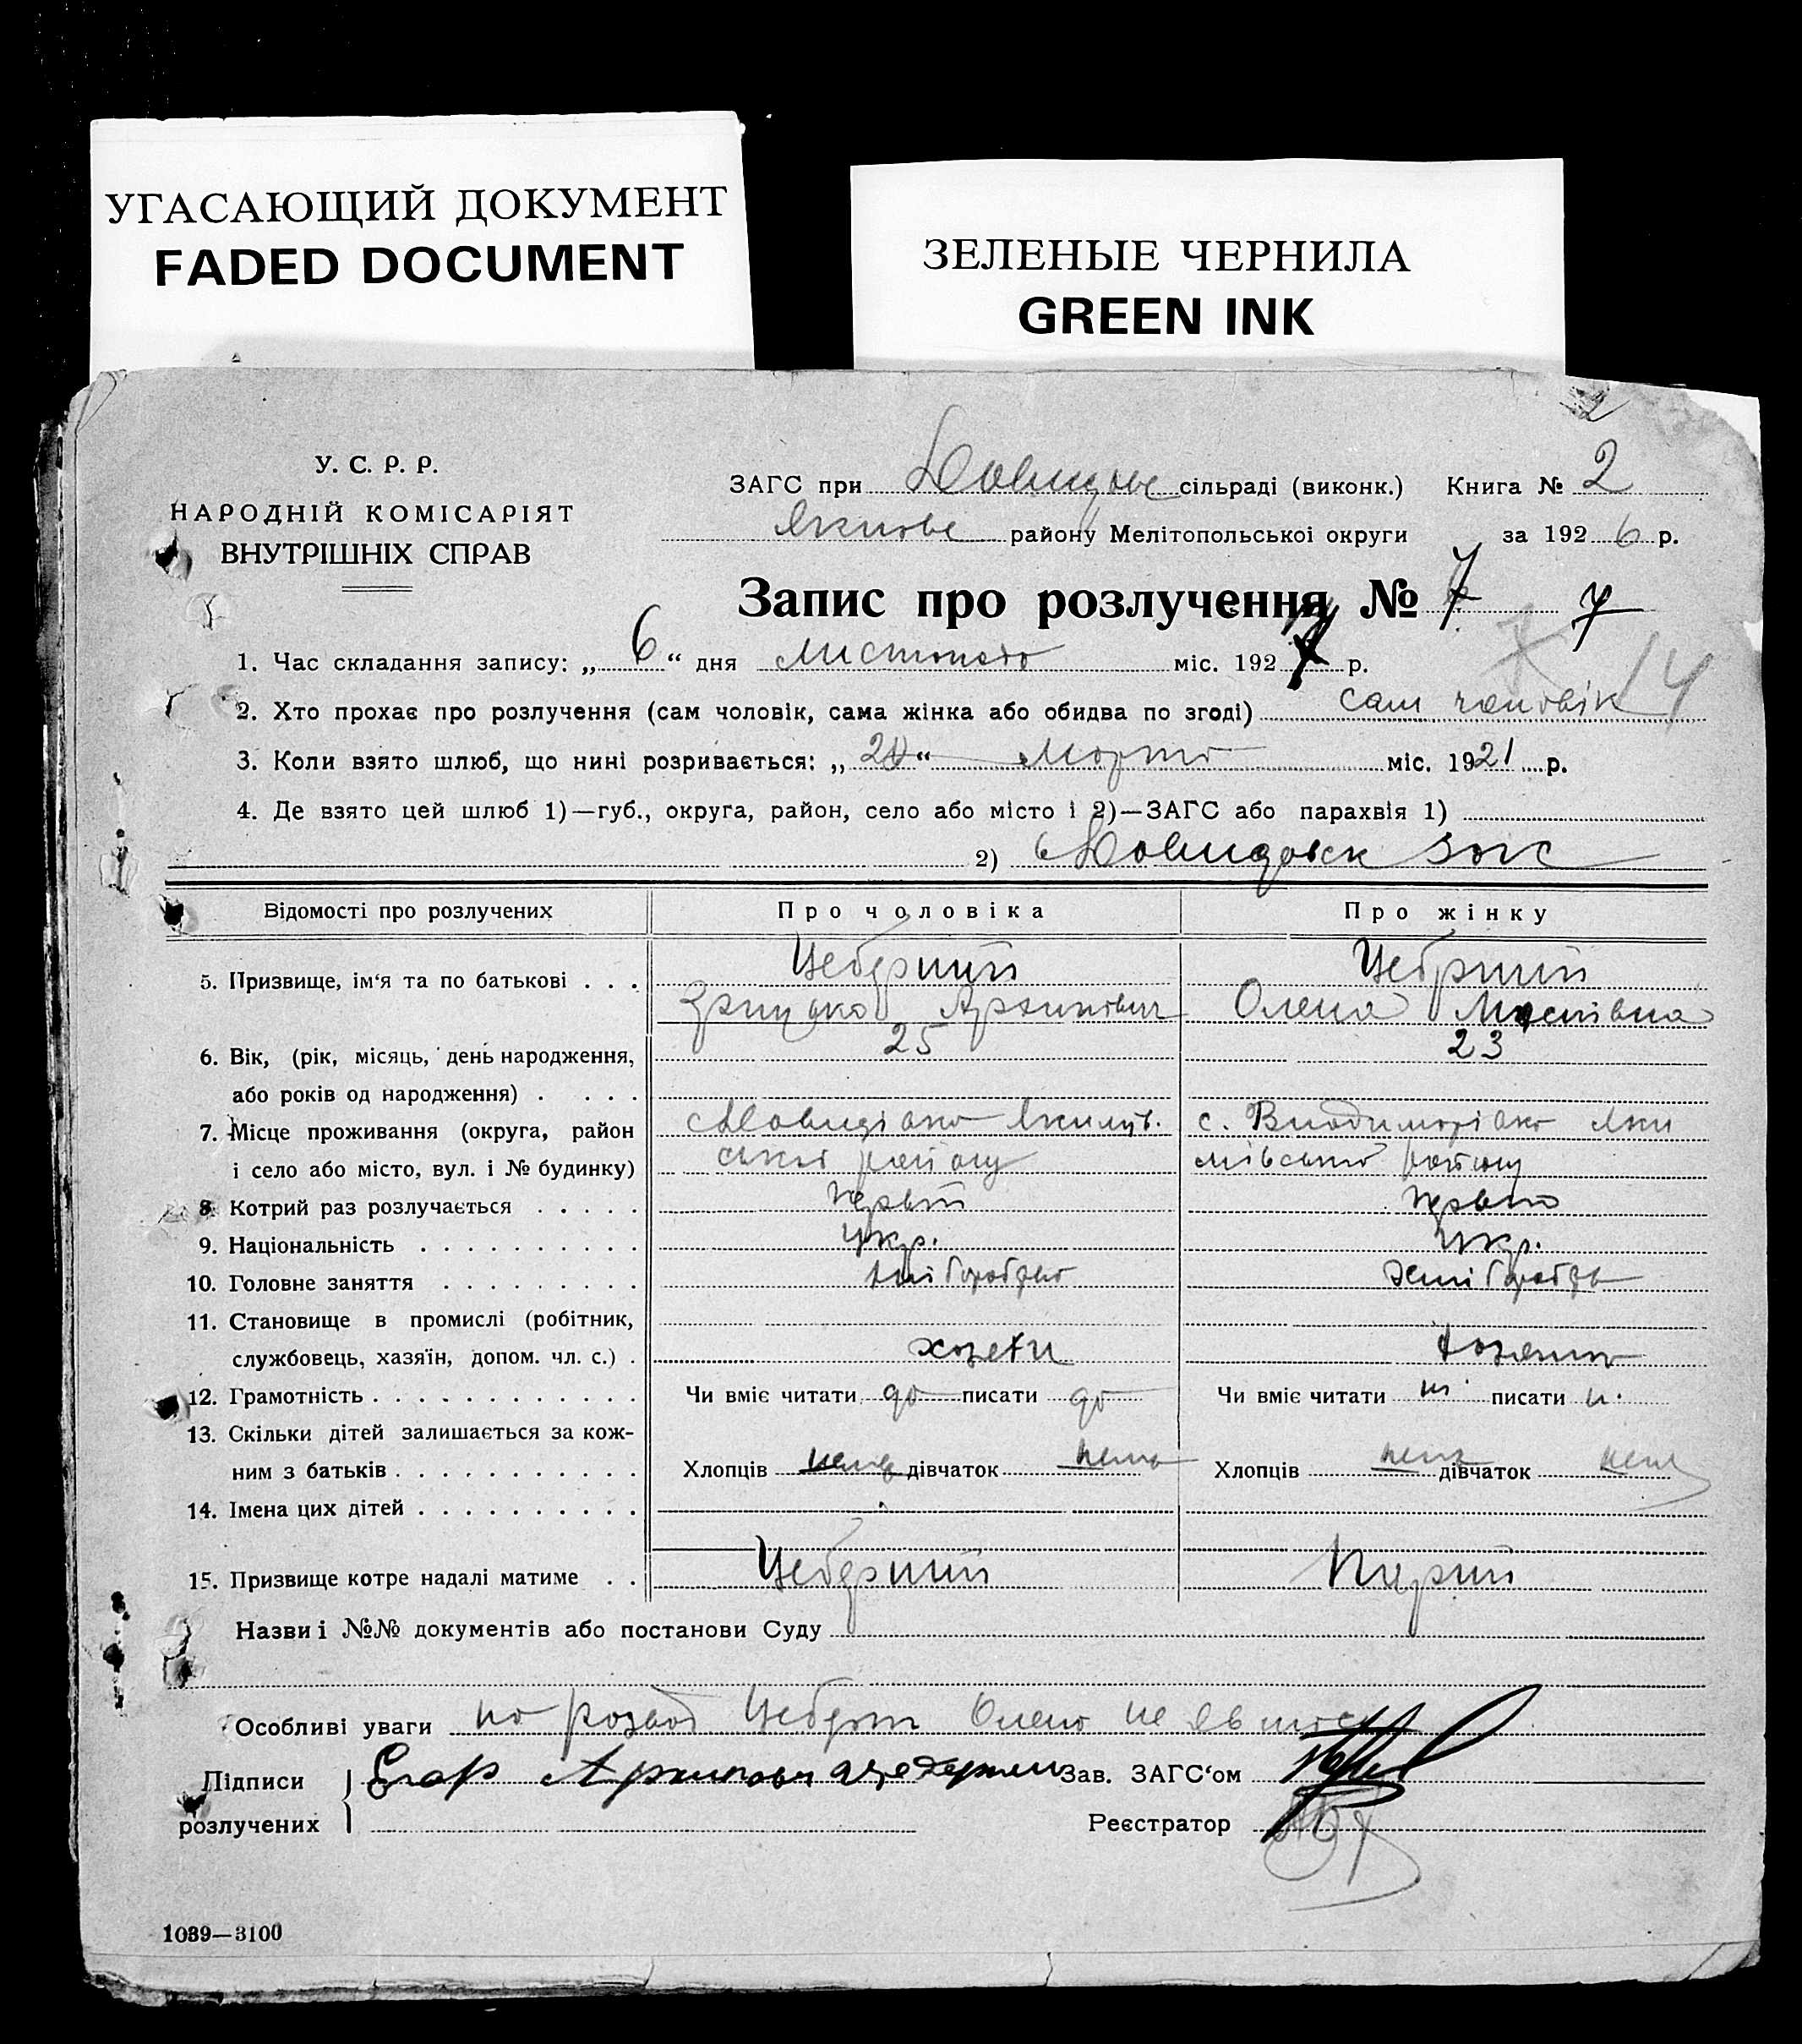 УГАСАЮЩИЙ ДОКУМЕНТ
FADED DOCUMENT
ЗЕЛЕНЫЕ ЧЕРНИЛА
GREEN INK
2
У. С. Р. Р.
НАРОДНІЙ КОМІСАРІЯТ
ВНУТРІШНІХ СПРАВ
ЗАГС при сільраді (виконк.) Книга № 2
району Мелітопольської округи за 1926 р.
Запис про розлучення № 7 7
1. Час складання запису: „ 6 “ дня листопада міс. 1927 р.
2. Хто прохає про розлучення (сам чоловік, сама жінка або обидва по згоді) сам чоловік
14
3. Коли взято шлюб, що нині розривається: „ “ Марта міс. 1921 р.
4. Де взято цей шлюб 1)—губ., округа, район, село або місто і 2)—ЗАГС або парахвія 1)
2) Давидовск Загс
Відомості про розлучених Про чоловіка Про жінку
5. Призвище, ім‘я та по батькові . . . Цебррий Цебрий
Грицько Архипович Олена
6. Вік, (рік, місяць, день народження, 25 23
або років од народження) . . . .
7. Місце проживання (округа, район с. с.
і село або місто, вул. і № будинку) району району
8. Котрий раз розлучається . . . . . первий перший
9. Національність . . . . . . . . . . Укр. Укр.
10. Головне заняття . . . . . . . . .
11. Становище в промислі (робітник,
службовець, хазяїн, допом. чл. с.) .
12. Грамотність . . . . . . . . . . . . Чи вміє читати да писати да Чи вміє читати ні писати н.
13. Скільки дітей залишається за кож-
ним з батьків . . . . . . . . . . . Хлопців нема дівчаток нема Хлопців нема дівчаток нема
14. Імена цих дітей . . . . . . . . . .
15. Призвище котре надалі матиме . . Цебррий
Назви і №№ документів або постанови Суду
Особливі уваги на развод Олена не
Підписи Егор Архипович Зав. ЗАГС‘ом
розлучених Реєстратор
1039—3100